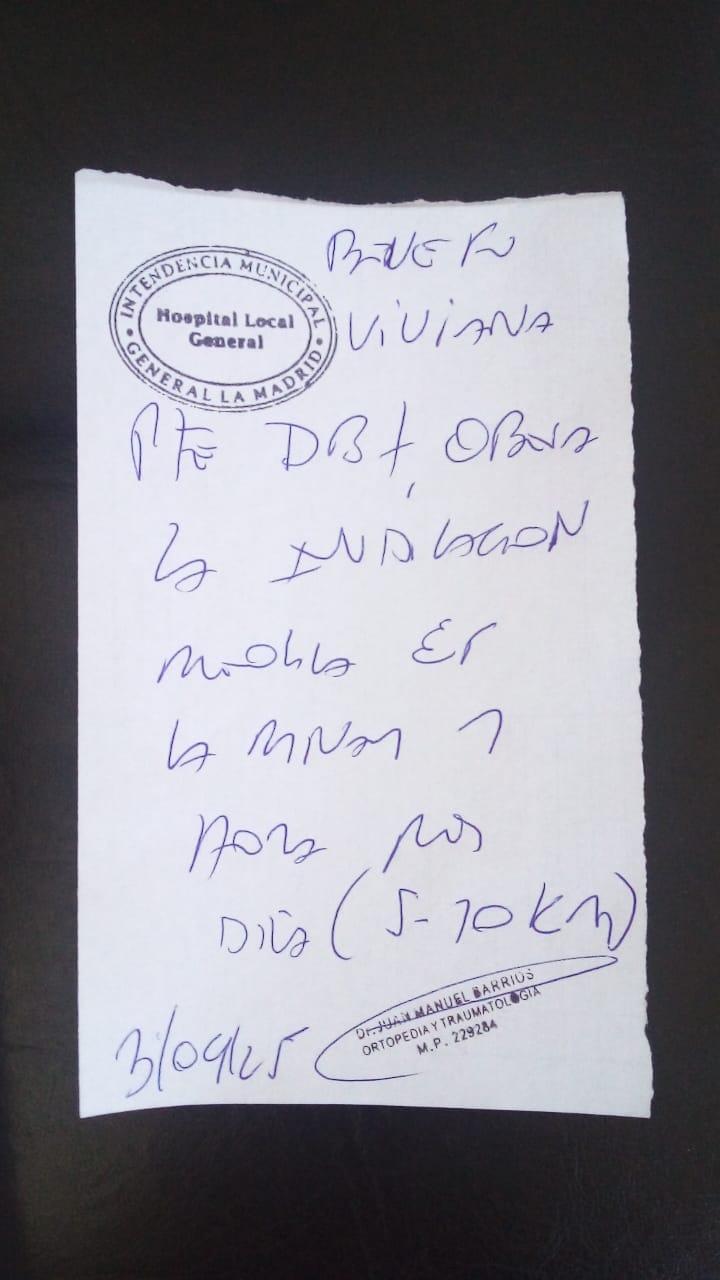 INTENDENCIA MUNICIPAL
Hospital Local
General
• GENERAL LA MADRID •
VIVIANA
PTE DBT,
LA INDICACION
ES
LA 1
HORA POR
DIA (5-10 KM)
3/09/25
Dr. JUAN MANUEL BARRIOS
ORTOPEDIA Y TRAUMATOLOGIA
M.P. 229284